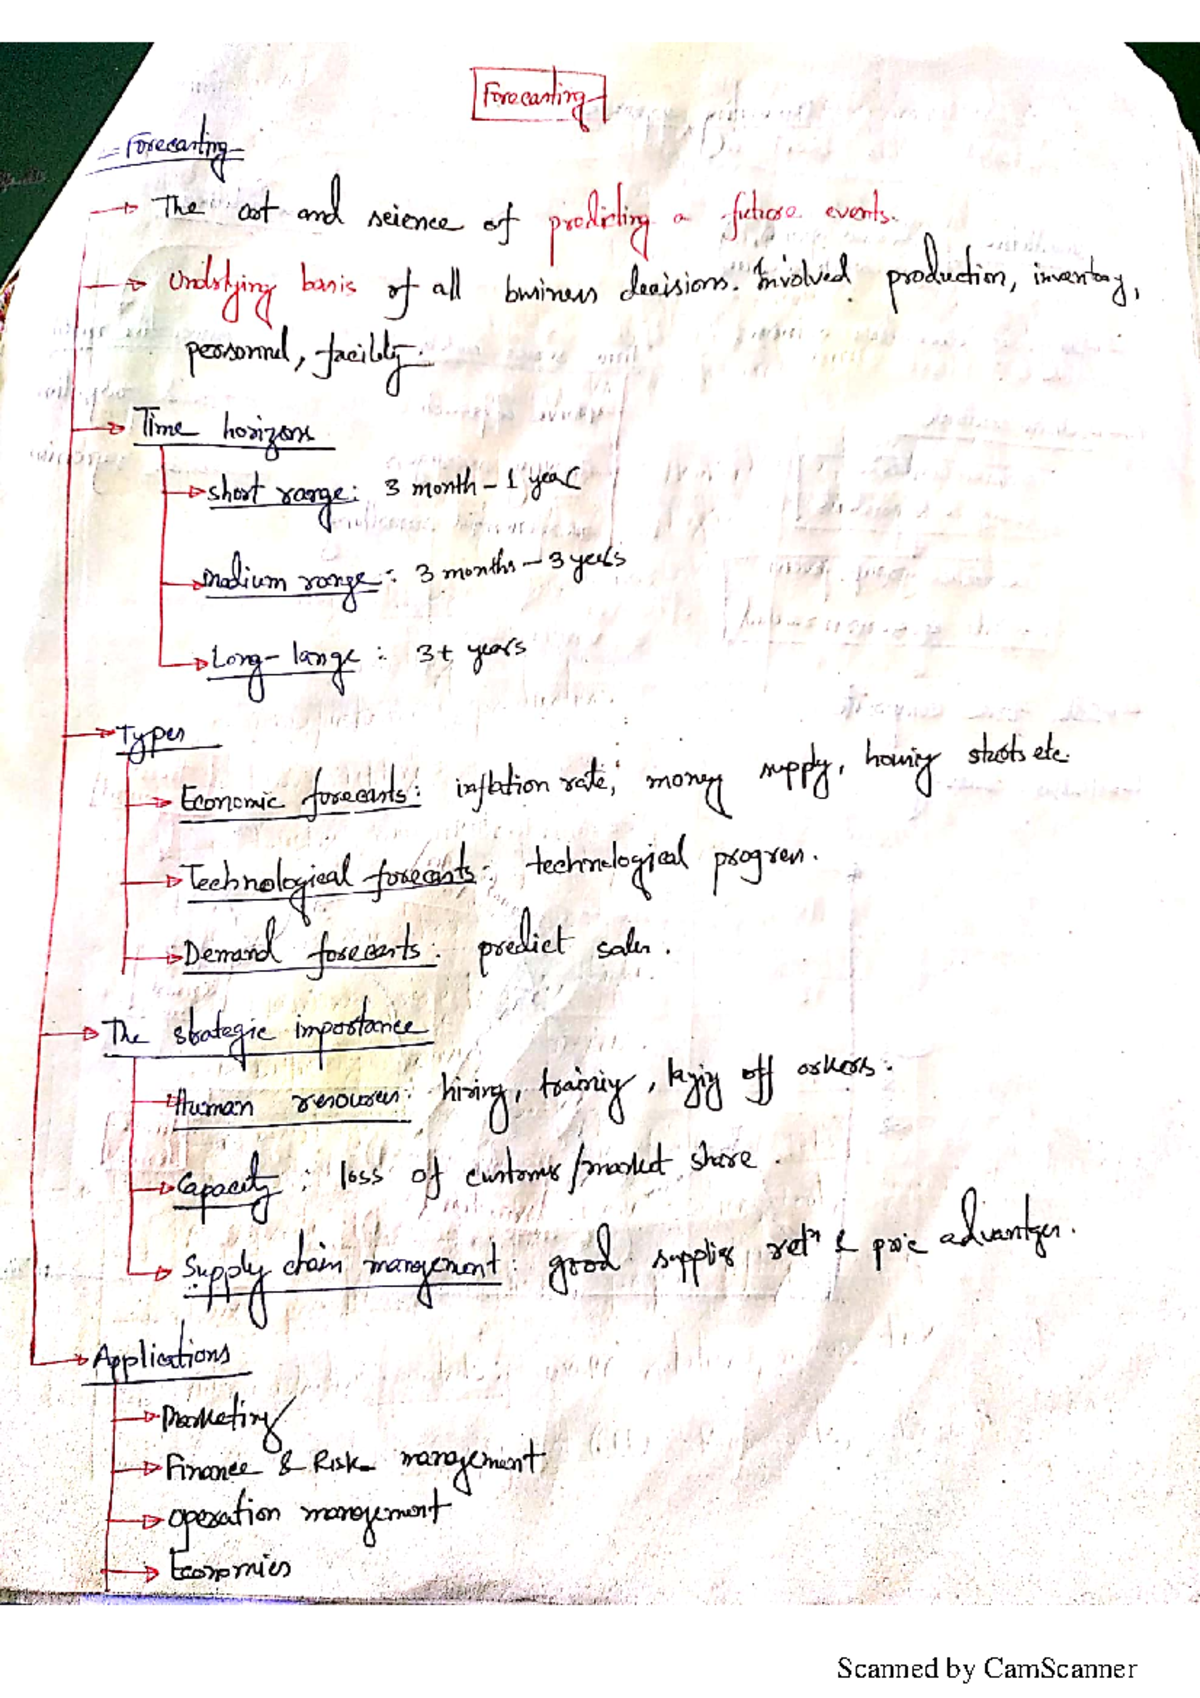 Forecasting
Forecasting
The art and science of predicting a future events.
Underlying basis of all business decisions. Involved production, inventory,
personnel, facility.
Time horizons
short range: 3 month - 1 year
Medium range: 3 months - 3 years
Long-lange: 3+ years
Types
Economic forecasts: inflation rate, money supply, housing starts etc.
Technological forecasts: technological progress.
Demand forecasts: predict sales.
The strategic importance
Human resources: hiring, training, laying off orkers.
Capacity: loss of customers/market share.
Supply chain management: good supplier reln & price advantages.
Applications
Marketing
Finance & Risk management
operation management
Economics
Scanned by CamScanner